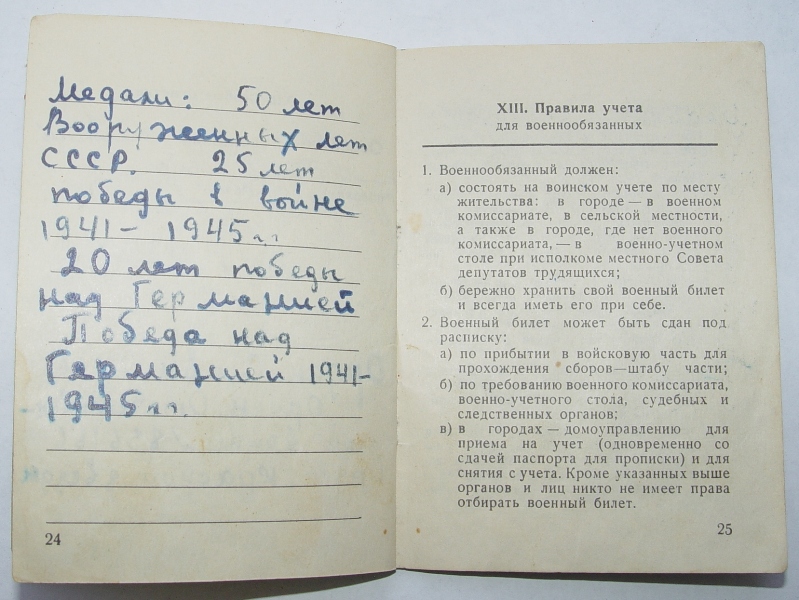 Медали: 50 лет
Вооруженных лет
СССР. 25 лет
победы в войне
1941 - 1945 г.г.
20 лет победы
над Германией
Победа над
Германией 1941-
1945 г.г.
24
XIII. Правила учета
для военнообязанных
1. Военнообязанный должен:
а) состоять на воинском учете по месту
жительства: в городе — в военном
комиссариате, в сельской местности,
а также в городе, где нет военного
комиссариата, — в военно-учетном
столе при исполкоме местного Совета
депутатов трудящихся;
б) бережно хранить свой военный билет
и всегда иметь его при себе.
2. Военный билет может быть сдан под
расписку:
а) по прибытии в войсковую часть для
прохождения сборов—штабу части;
б) по требованию военного комиссариата,
военно-учетного стола, судебных и
следственных органов;
в) в городах — домоуправлению для
приема на учет (одновременно со
сдачей паспорта для прописки) и для
снятия с учета. Кроме указанных выше
органов и лиц никто не имеет права
отбирать военный билет.
25